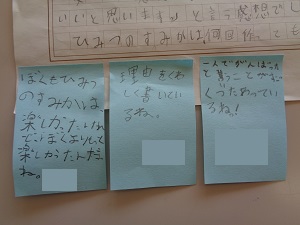 いいと思いますかと言う感想でし
ひみつのすみかは、何回作っても
ぼくもひみつ
のすみかは
楽しかったけれ
どぼくよりもっと
楽しかったんだ
ね。
理由をくわ
しく書いてい
るね。
一人でがんばった
て言うことがよ
くつたわってい
るね!